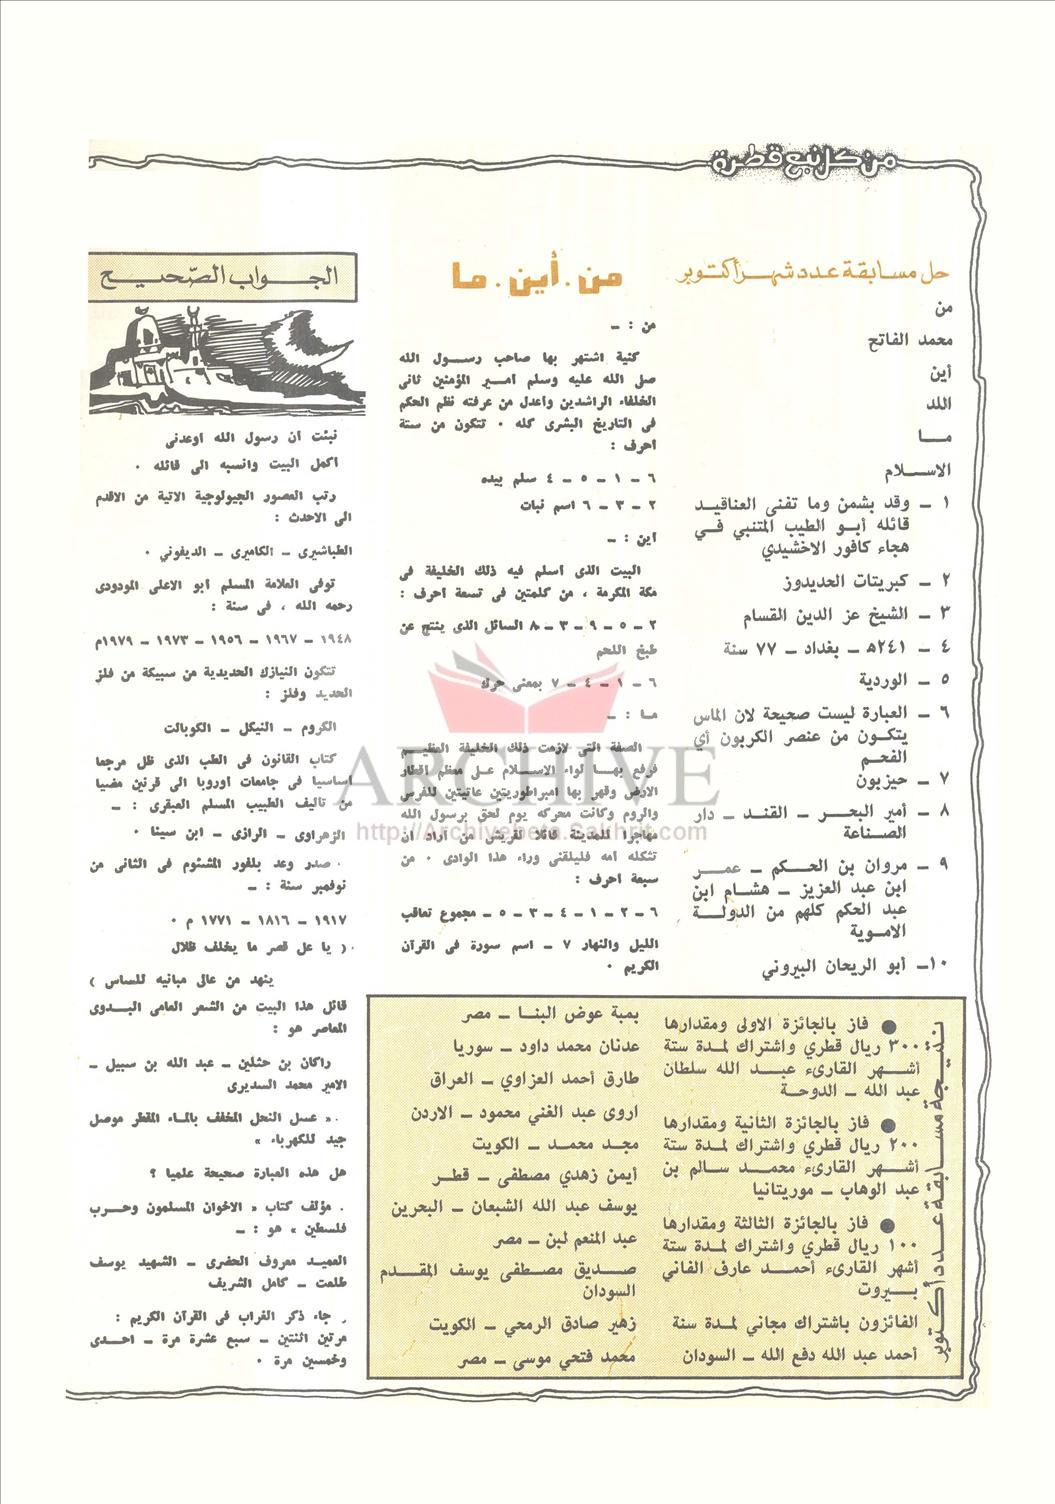 من كل نبع قطرة
حل مسابقة عدد شهر أكتوبر
من
محمد الفاتح
أين
اللد
مــا
الاســـلام
١ ــ وقد بشمن وما تفنى العناقيـد
قائله أبـو الطيب المتنبي فـي
هجاء كافور الاخشيدي
٢ ــ كبريتات الحديدوز
٣ ــ الشيخ عز الدين القسام
٤ ــ ٢٤١هـ ــ بغداد ــ ٧٧ سنة
٥ ــ الوردية
٦ ــ العبارة ليست صحيحة لان الماس
يتكون من عنصر الكربون أي
الفحـم
٧ ــ حيزبون
٨ ــ أمير البحـر ــ القنـد ــ دار
الصـناعة
٩ ــ مروان بن الحـكم ــ عمـر
ابن عبد العزيز ــ هشـام ابن
عبد الحكم كلهم من الدولـة
الاموية
١٠ــ أبو الريحان البيروني
من . أين . ما
من : ــ
كنية اشتهر بها صاحب رسـول الله
صل الله عليه وسلم أمـير المؤمنين ثانى
الخلفاء الراشدين وأعدل من عرفته نظم الحكم
فى التاريخ البشرى كله ٠ تتكون من ستة
احرف :
٦ ــ ١ ــ ٥ ــ ٤ سلم بيده
٢ ــ ٣ ــ ٦ اسم نبات
أين : ــ
البيت الذى أسلم فيه ذلك الخليفة فى
مكة المكرمة ، من كلمتين فى تسعة احرف :
٢ ــ ٥ ــ ٩ ــ ٣ ــ ٨ السائل الذى ينتج عن
طبخ اللحم
٦ ــ ١ ــ ٤ ــ ٧ بمعنى حرك
مـا : ــ
الصفة التى لازمت ذلك الخليفة العظيـم
فرفع بهـا لواء الاسـلام عـل معظم اقطار
الارض وقهر بها امبراطوريتين عاتيتين للفرس
والروم وكانت معركه يوم لحق برسول الله
مهاجرا للمدينة قائلا لقريش من أراد أن
تثكله أمه فليلقنى وراء هذا الوادى ٠ من
سبعة احرف :
٦ ــ ٢ ــ ١ ــ ٤ ــ ٣ ــ ٥ ــ مجموع تعاقب
الليل والنهار ٧ ــ اسم سورة فى القرآن
الكريم ٠
الجـواب الصّحيـح
نبئت ان رسول الله اوعدنى
اكمل البيت وانسبه الى قائله ٠
رتب العصور الجيولوجية الاتية من الاقدم
الى الاحدث :
الطباشيرى ــ الكامبرى ــ الديفونى ٠
توفى العلامة المسلم أبو الاعلى المودودى
رحمه الله ، فى سنة :
١٩٤٨ ــ ١٩٦٧ ــ ١٩٥٦ ــ ١٩٧٣ ــ ١٩٧٩م
تتكون النيازك الحديدية من سبيكة من فلز
الحديد وفلز :
الكروم ــ النيكل ــ الكوبالت
كتاب القانون فى الطب الذى ظل مرجعا
اساسيا فى جامعات أوروبا الى قرنين مضيا
من تاليف الطبيب المسلم العبقرى : ــ
الزهراوى ــ الرازى ــ ابن سينا ٠
. صدر وعد بلفور المشئوم فى الثانى من
نوفمبر سنة : ــ
١٩١٧ ــ ١٨١٦ ــ ١٧٧١ م ٠
.( يا عل قصر ما يخلف ظلال
ينهد من عالى مبانيه للساس )
قائل هذا البيت من الشعر العامى البـدوى
المعاصر هو :
راكان بن حثلين ــ عبد الله بن سبيل ــ
الامير محمد السديرى
.« عسل النحل المخفف بالمـاء المقطر موصل
جيد للكهرباء »
هل هذه العبارة صحيحة علميا ؟
. مؤلف كتاب « الاخوان المسلمون وحـرب
فلسطين » هو : ــ
العميـد معروف الحضرى ــ الشهيد يوسف
طلعت ــ كامل الشريف
. جاء ذكر الغراب فى القرآن الكريم :
مرتين اثنتين ــ سبع عشرة مرة ــ احـدى
وخمسين مرة ٠
نتيجة مسابقة عدد أكتوبر
● فاز بالجائزة الاولى ومقدارها
٣٠٠ ريال قطري واشتراك لمـدة ستة
أشـهر القارىء عبـد الله سلطان
عبد الله ــ الدوحـة
● فاز بالجائزة الثانية ومقدارها
٢٠٠ ريال قطري واشتراك لمـدة ستة
أشـهر القارىء محمـد سـالم بن
عبد الوهاب ــ موريتانيا
● فاز بالجائزة الثالثة ومقدارها
١٠٠ ريال قطري واشتراك لمـدة ستة
أشهر القارىء أحمـد عارف الفاني
بـيروت
الفائزون باشتراك مجاني لمـدة سنة
أحمد عبد الله دفع الله ــ السودان
بمبة عوض البنـا ــ مصر
عدنان محمد داود ــ سوريا
طارق أحمد العزاوي ــ العراق
اروى عبد الغني محمود ــ الاردن
مجـد محمـد ــ الكويت
أيمن زهدي مصطفى ــ قطـر
يوسف عبد الله الشبعان ــ البحرين
عبد المنعم لبن ــ مصر
صـديق مصـطفى يوسف المقـدم
السودان
زهير صادق الرمحي ــ الكويت
محمد فتحي موسى ــ مصر
ARCHIVE
http://Archivebeta.Sakhrit.com